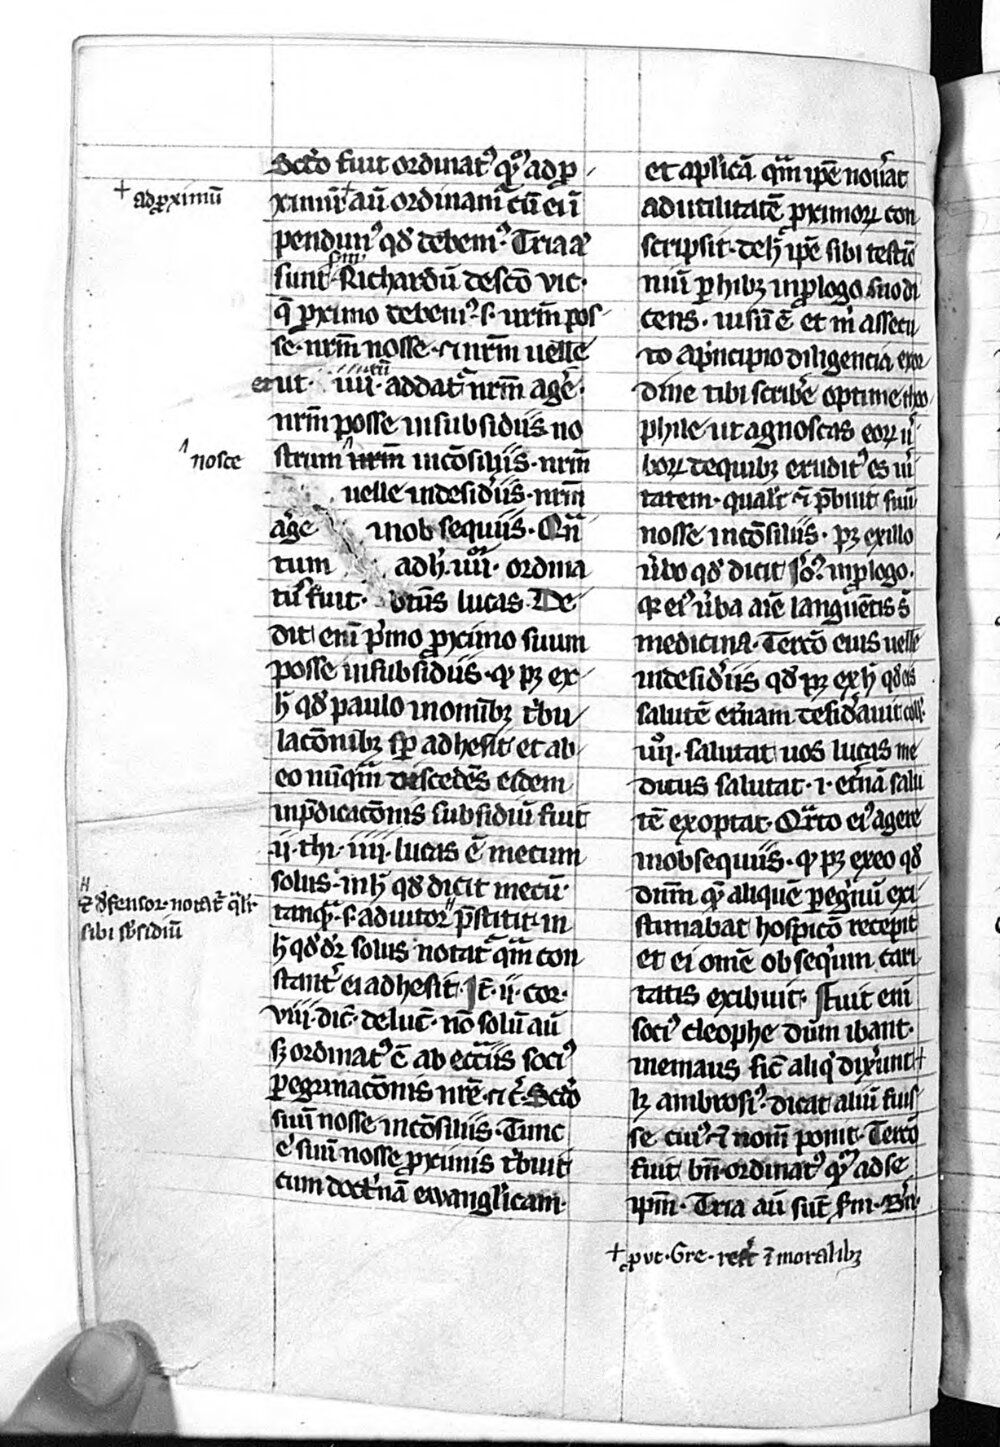 Scd̄o fuit ordinatꝰ qͦ ad ꝓ
ximū⁺ aū ordinam̄ cū ei ī
pendimꝰ qd̄ debemꝰ. Tria aū
sunt sm̄ Richardū de scō vic.
q̄ ꝓximo debemꝰ. s. nrm̄ pos
se. nrm̄ nosse. ⁊ nrm̄ uelle
erut. iiii. addatᷣ nrm̄ agē.
nrm̄ posse in subsidiis no
strum nrm̄ in cōsiliis. nrm̄
uelle in desid̓iis. nrm̄
age in obsequiis. Qn̄
tum ad h̓. iiii. ordina
tꝰ fuit. btūs lucas. De
dit eni p̓mo ꝓximo suum
posse in subsidiis. qͥ pꝫ ex
h̓ qd̄ paulo in om̄ibꝫ tͥbu
lacōnibꝫ sꝑ adhesit et ab
eo nūqm̄ discedēs eidem
in p̄dicacōnis subsidiū fuit
ij. thi. iiii. lucas ē mecum
solus. in h̓ qd̄ dicit mecū.
tanqͣ. s. adiutor p̄stitit. in
h̓ qd̄ dr̄ solus notatᷣ qm̄ con
stantᷣ ei adhesit. Jt̄. ij. cor.
viii. dic̄. de luc̄. nō solū aū
sꝫ ordinatꝰ ē ab ecc̄iis sociꝰ
ꝑegrinacōnis nrē. ⁊ c̄. Scd̄o
suū nosse in cōsiliis. Tunc
eͥ suū nosse ꝓximis tͥbuit
cum doctͥnā ewangl̓icam.
⁺ ad ꝓximū
^ nosce
⁊ d̓fensor. notatᷣ ql̓r
sibi sb̓sidiū
et aplicā qm̄ ip̄e nou̓at
ad utilitatē ꝓximoꝝ con
scripsit. de h̓ ip̄e sibi testīo
niū ꝑhibꝫ in ꝓlogo suo di
cens. uisū ē et m̓ assecu
to a p̓ncipio diligencia ex or
dine tibi scribe optime theo
phile ut agnoscas eoꝝ ū
boꝝ de quibꝫ eruditꝰ es ū
tatem. qualr̓ ⁊ p̄buit suū
nosse in cōsiliis. pꝫ ex illo
ūbo qd̄ dicit Jō. in ꝓlogo.
qꝛ eiꝰ ūba aīe languētis s̄
medicina. Tercō eius uelle
in desid̓iis qd̄ pꝫ ex h̓ qd̄ eis
salutē et̓nam desid̓auit coll̓.
iiii. salutat uos lucas me
dicus salutat. i. et̓nā salu
tē exoptat. Qͣrto eiꝰ agere
in obsequiis. qͥ pꝫ ex eo qd̄
dnm̄ qͥ aliquē ꝑeg̓nū exi
stimabat hospicō recepit
et ei omē obseqͥum cari
tatis exibuit. Fuit eni
sociꝰ cleophe dum ibant.
in emaus sic̄ aliq̓ dix̓unt ⁺
lꝫ ambrosiꝰ. dicat aliū fuis
se cuiꝰ ⁊ nom̄ ponit. Tercō
fuit bn̄ ordinatꝰ qͦ ad se
ipm̄. Tria aū sūt sm̄. Br̄n.
⁺ ꝓut. Gre. recit̄ ī moralibꝫ